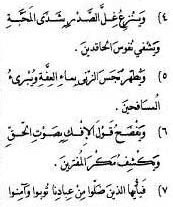 ٤) وينزع غل الصدر بشذى المحبة
ويشفي نفوس الحاقدين.
٥) ويطهر نجس الزنى بماء العفة ويبرئ
المسافحين.
٦) ويفضح قول الإفك بصوت الحق
ويكشف مكر المفترين.
٧) فيأيها الذين ضلوا من عبادنا توبوا وآمنوا